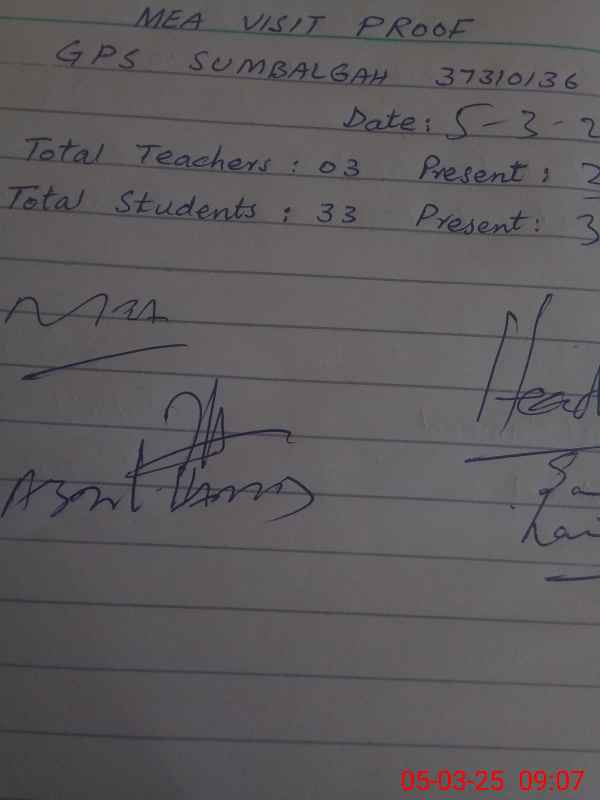 MEA VISIT PROOF
GPS SUMBALGAH 37310136
Date: 5-3-2
Total Teachers: 03 Present: 2
Total Students: 33 Present: 3
MEA
Head
05-03-25 09:07